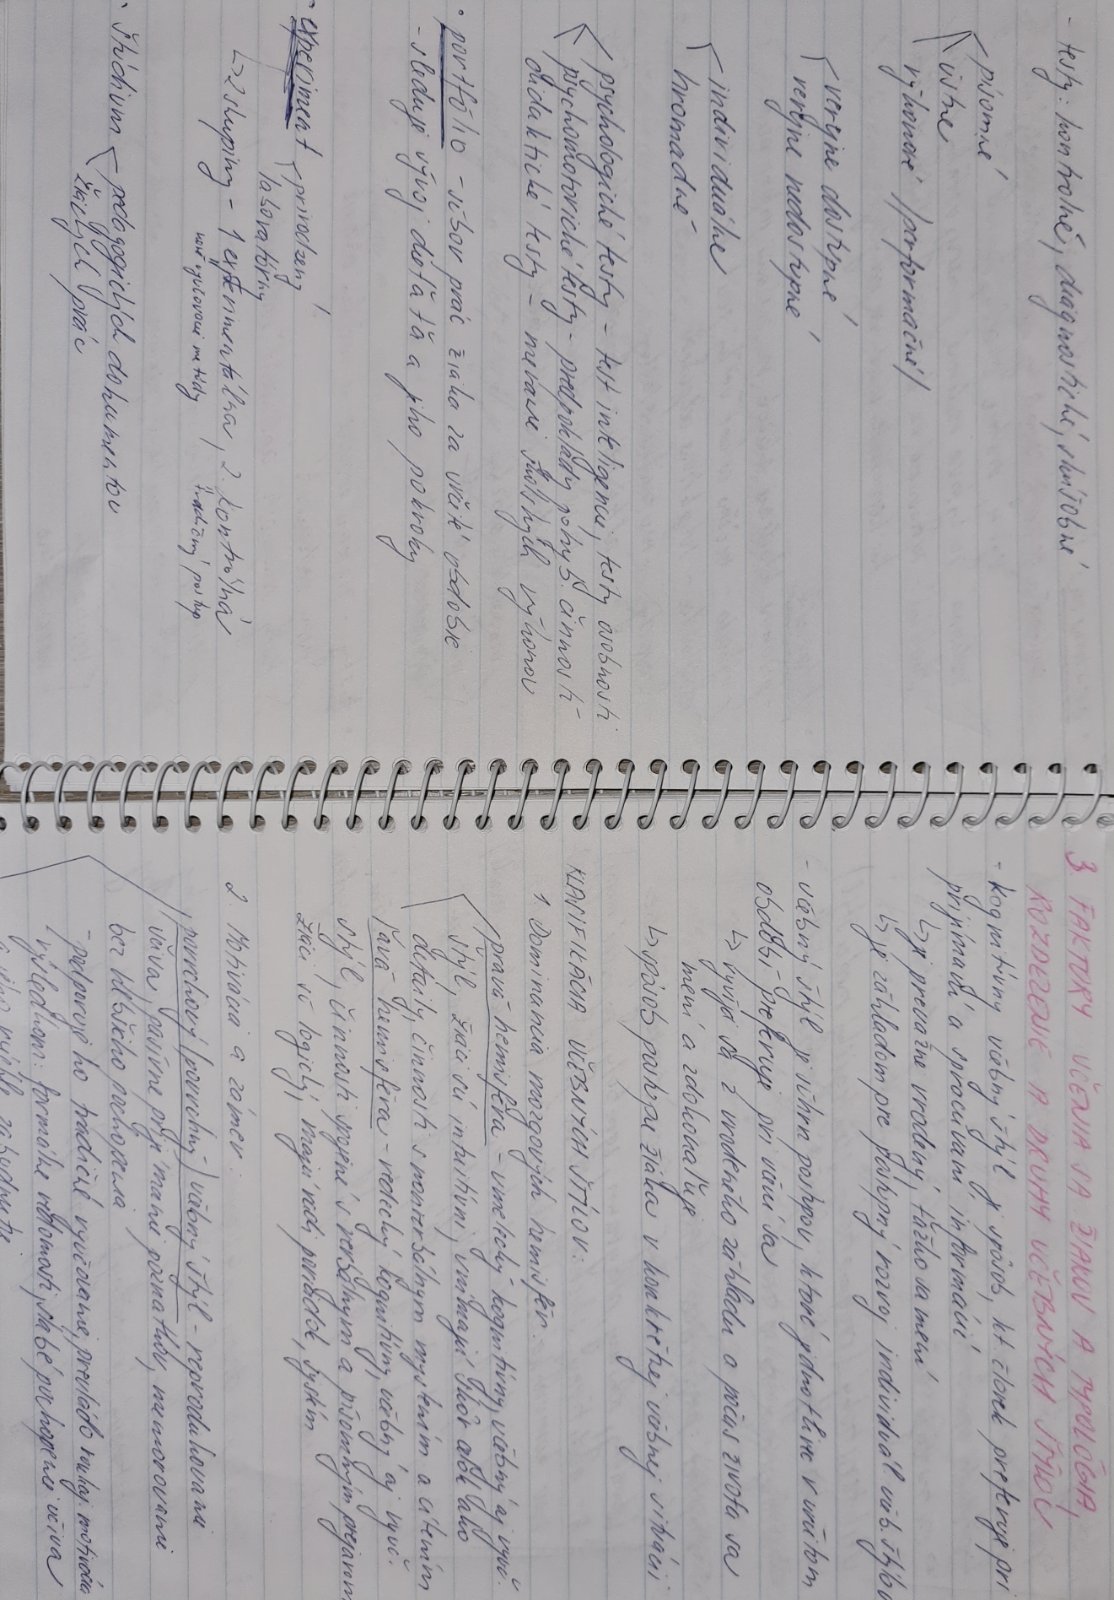 - testy: kontrolné, diagnostické, skúšobné
písomné
ústne
výkonové /performačné/
verejne dostupné
verejne nedostupné
individuálne
hromadné
psychologické testy - test inteligencie, testy osobnosti
psychomotorické testy - predpoklady pohyb. činnosti
didaktické testy - meranie školských výkonov
• portfólio - súbor prác žiaka za určité obdobie
- sleduje vývoj dieťaťa a jeho pokroky
• experiment prirodzený
laboratórny
↳ 2 skupiny - 1 experimentálna, 2. kontrolná
nové vyučovacie metódy tradičný postup
• štúdium pedagogických dokumentov
žiackych prác
3 FAKTORY UČENIA SA ŽIAKOV A TYPOLÓGIA,
ROZDELENIE A DRUHY UČEBNÝCH ŠTÝLOV
- kognitívny učebný štýl je spôsob, kt. človek preferuje pri
prijímaní a spracúvaní informácií
↳ je prevažne vrodený, ťažko sa mení
↳ je základom pre postupný rozvoj individuál. uč. štýlu
- učebný štýl je súhrn postupov, ktoré jednotlivec v určitom
období preferuje pri učení sa
↳ vyvíja sa z vrodeného základu a počas života sa
mení a zdokonaľuje
↳ spôsob postupu žiaka v konkrétnej učebnej situácii
KLASIFIKÁCIA UČEBNÝCH ŠTÝLOV:
1 Dominancia mozgových hemisfér:
pravá hemisféra - umelecký kognitívny, učebný aj vyuč.
štýl, žiaci sú intuitívni, vnímajú skôr celok ako
detaily, činnosti s neverbálnym myslením a cítením
ľavá hemisféra - vedecký kognitívny, učebný aj vyuč.
štýl, činnosti spojené s verbálnym a písomným prejavom
žiaci sú logickí, majú radi poriadok, systém
2 Motivácia a zámer:
povrchový /povrchný/ učebný štýl - reprodukovanie
učiva, pasívne prijímanie poznatkov, memorovanie
bez hlbšieho pochopenia
- podporuje ho tradičné vyučovanie, prevláda vonkaj. motivácia
výsledkom: formálne vedomosti, slabé pochopenie učiva
a jeho rýchle zabudnutie